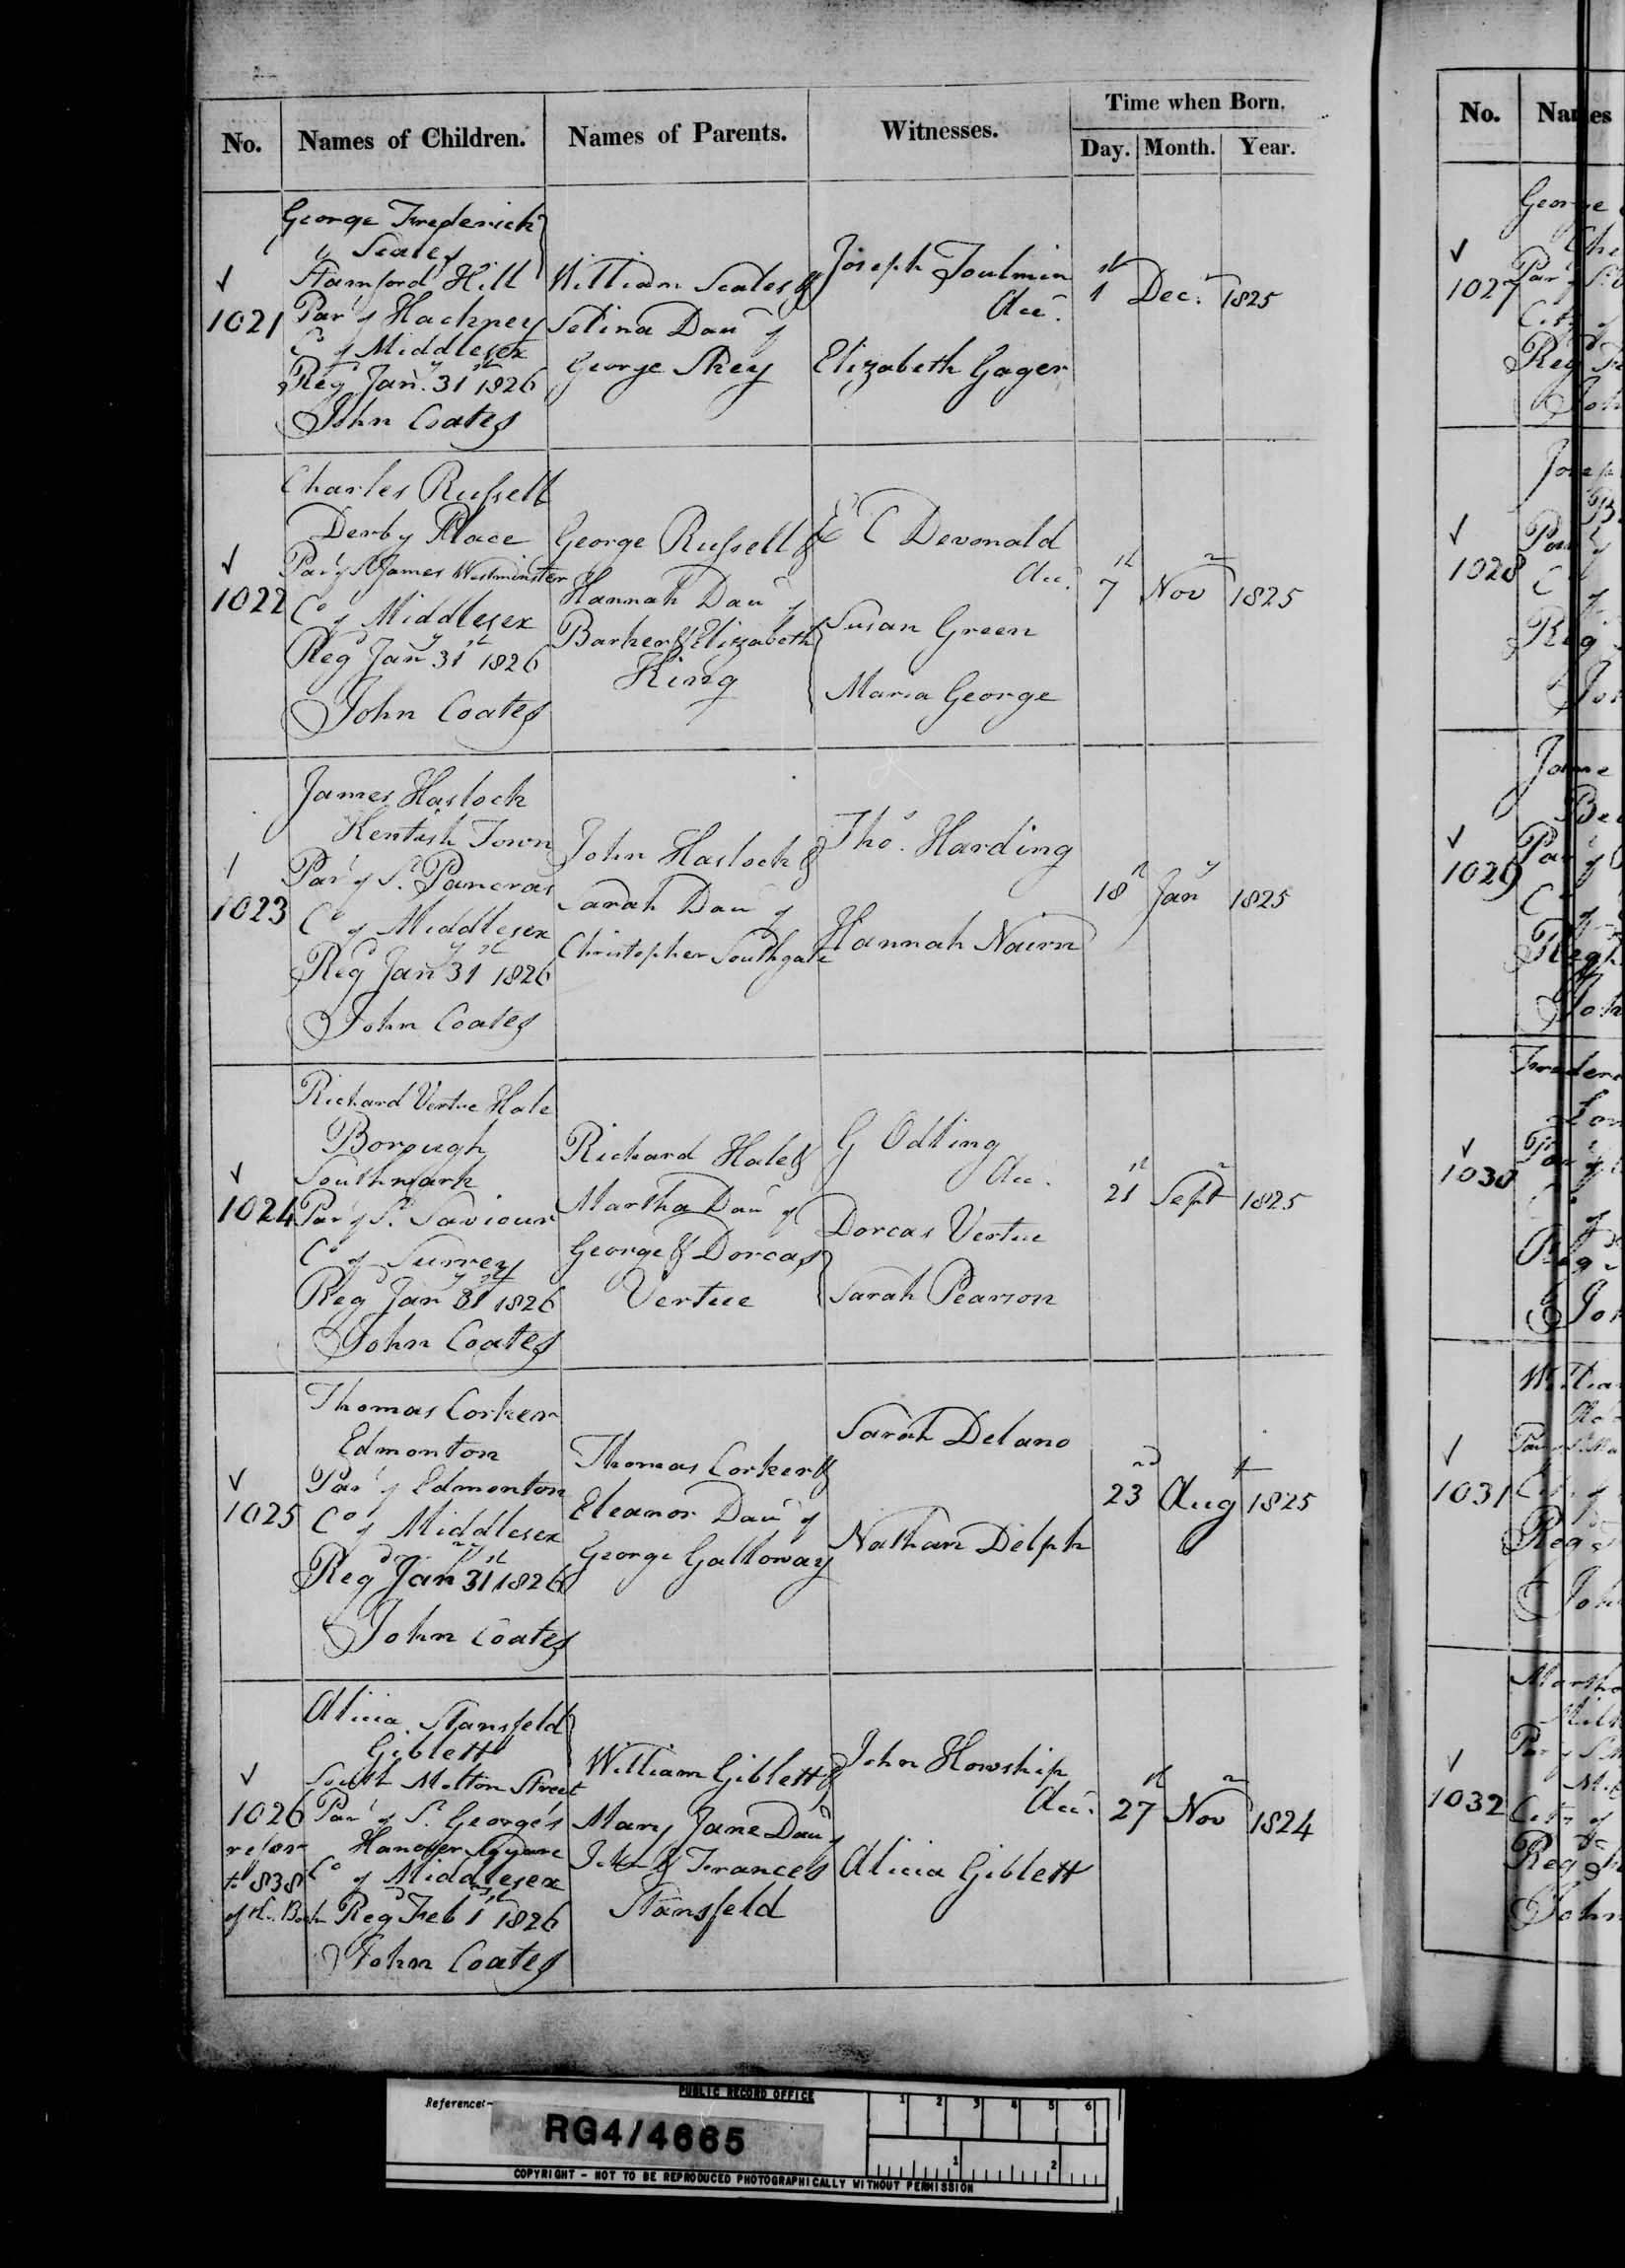 No.
Names of Children.
Names of Parents.
Witnesses.
Time when Born.
Day. Month. Year.
1021
George Frederick
Scales
Stamford Hill
Par of Hackney
Co of Middlesex
Regd Jany 31st 1826
John Coates
William Scales &
Selina Daur of
George Skey
Joseph Toulmin
Acc.
Elizabeth Gager
1st Decr 1825
1022
Charles Russell
Derby Place
Par of St James Westminster
Co of Middlesex
Regd Jany 31st 1826
John Coates
George Russell &
Hannah Daur of
Barker & Elizabeth
King
E C Devonald
Acc.
Susan Green
Maria George
7th Novr 1825
1023
James Haslock
Kentish Town
Par of St. Pancras
Co of Middlesex
Regd Jany 31st 1826
John Coates
John Haslock &
Sarah Daur of
Christopher Southgate
Thos. Harding
Hannah Nairn
18th Jany 1825
1024
Richard Vertue Hale
Borough
Southwark
Par of St. Saviour
Co of Surrey
Regd Jany 31st 1826
John Coates
Richard Hale &
Martha Daur of
George & Dorcas
Vertue
G Odling
Acc.
Dorcas Vertue
Sarah Pearson
21st Septr 1825
1025
Thomas Corker
Edmonton
Par of Edmonton
Co of Middlesex
Regd Jany 31st 1826
John Coates
Thomas Corker &
Eleanor Daur of
George Galloway
Sarah Delano
Nathan Delph
23rd Augt 1825
1026
refer
to 838
of this Book
Alicia Stansfeld
Giblett
South Molton Street
Par of St. George's
Hanover Square
Co of Middlesex
Regd Feb 1st 1826
John Coates
William Giblett &
Mary Jane Daur of
John & Frances
Stansfeld
John Howship
Acc.
Alicia Giblett
27th Novr 1824
No.
1027
1028
1029
1030
1031
1032
PUBLIC RECORD OFFICE
Reference:-
RG4/4665
1 2 3 4 5 6
1 2
COPYRIGHT - NOT TO BE REPRODUCED PHOTOGRAPHICALLY WITHOUT PERMISSION